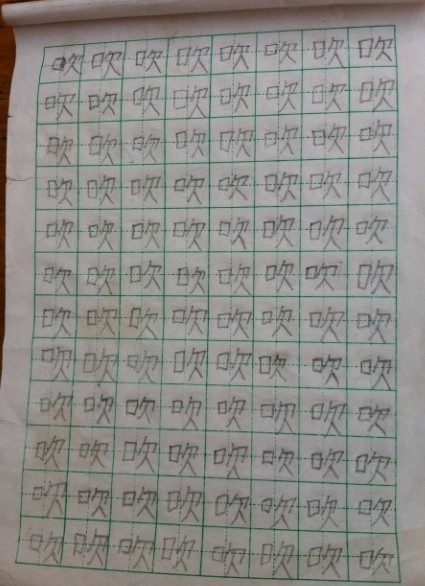 吹吹吹吹吹吹吹吹
吹吹吹吹吹吹吹吹
吹吹吹吹吹吹吹吹
吹吹吹吹吹吹吹吹
吹吹吹吹吹吹吹吹
吹吹吹吹吹吹吹吹
吹吹吹吹吹吹吹吹
吹吹吹吹吹吹吹吹
吹吹吹吹吹吹吹吹
吹吹吹吹吹吹吹吹
吹吹吹吹吹吹吹吹
吹吹吹吹吹吹吹吹